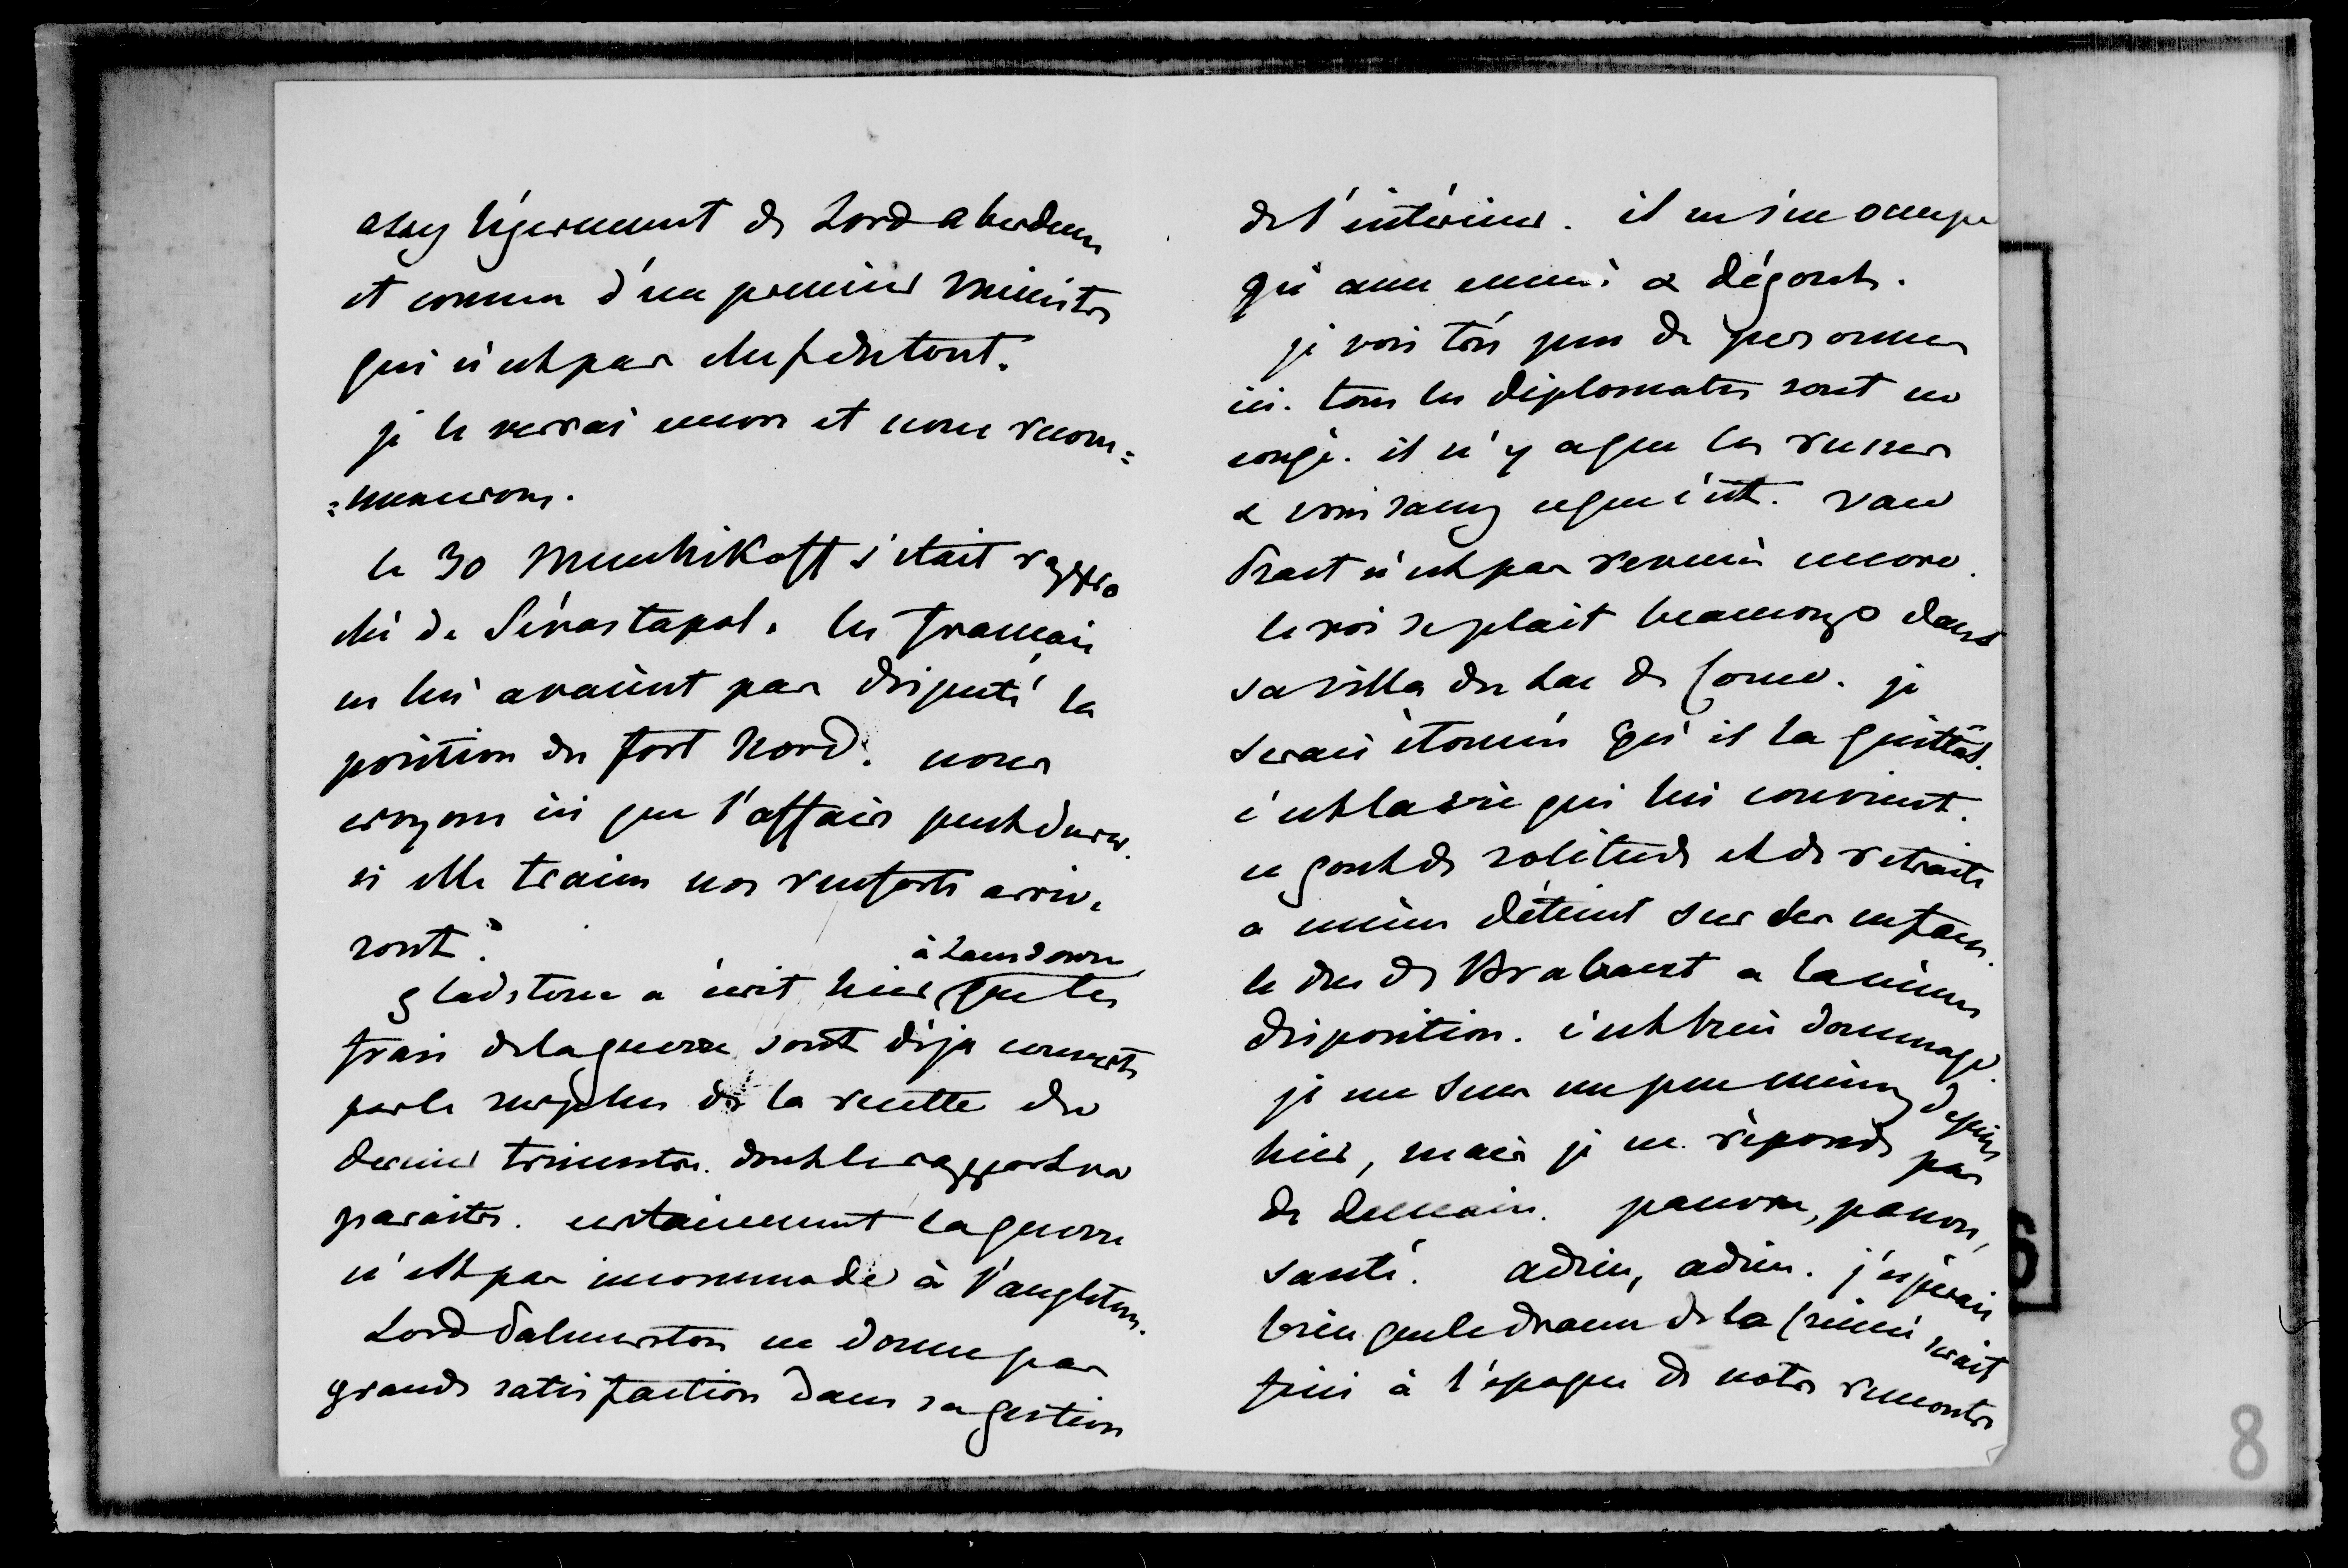 assez légèrement de Lord Aberdeen
et comme d'un premier ministre
qui n'est pas chef du tout.
je le verrai encore et nous recom=
=mencerons.
le 30 Menchikoff s'était rappro
ché de Sévastopol. les français
ne lui avaient pas disputé la
position du fort Nord. nous
croyons ici que l'affaire peut durer.
si elle traine nos renforts arrive
ront.
à Lansdown
gladstone a écrit hier que les
frais de la guerre sont déja couverts
par le surplus de la recette du
dernier trimestre. dont le rapport va
paraitre. certainement la guerre
n'est pas incommode à l'angleterre.
Lord Palmerston ne donne pas
grande satisfaction dans sa gestion
de l'intérieur. il ne s'en occupe
qu'avec ennui & dégout.
je vois très peu de personnes
ici. tous les diplomates sont en
congé. il n'y a que les russes
& vous savez ce que c'est. Van
Praet n'est pas revenu encore.
le roi se plait beaucoup dans
sa villa du Lac de Come. je
serais étonnée qu'il la quittât.
c'est la vie qui lui convient.
ce gout de solitude et de retraite
a même déteint sur ses enfans.
le duc de Brabant a la même
disposition. c'est bien dommage.
je me sens un peu mieux depuis
hier, mais je ne réponds pas
de demain. pauvre, pauvre,
santé. adieu, adieu. j'espérais
bien que le drame de la Crimée serait
fini à l'epoque de notre rencontre
6
8